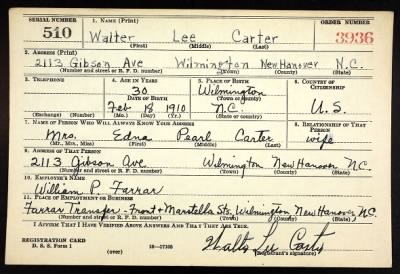 SERIAL NUMBER 1. NAME (Print) ORDER NUMBER
510 Walter Lee Carter 3936
(First) (Middle) (Last)
2. ADDRESS (Print)
2113 Gibson Ave Wilmington New Hanover N.C.
(Number and street or R. F. D. number) (Town) (County) (State)
3. TELEPHONE 4. AGE IN YEARS 5. PLACE OF BIRTH 6. COUNTRY OF CITIZENSHIP
30 Wilmington
DATE OF BIRTH (Town or county)
Feb 18 1910 N.C. U.S.
(Exchange) (Number) (Mo.) (Day) (Yr.) (State or country)
7. NAME OF PERSON WHO WILL ALWAYS KNOW YOUR ADDRESS 8. RELATIONSHIP OF THAT PERSON
Mrs. Edna Pearl Carter wife
(Mr., Mrs., Miss) (First) (Middle) (Last)
9. ADDRESS OF THAT PERSON
2113 Gibson Ave. Wilmington New Hanover N.C.
(Number and street or R. F. D. number) (Town) (County) (State)
10. EMPLOYER'S NAME
William P. Farrar
11. PLACE OF EMPLOYMENT OR BUSINESS
Farrar Transfer - Front + Marstella Sts. Wilmington New Hanover, N.C.
(Number and street or R. F. D. number) (Town) (County) (State)
I AFFIRM THAT I HAVE VERIFIED ABOVE ANSWERS AND THAT THEY ARE TRUE.
REGISTRATION CARD
D. S. S. Form 1 (over) 16—17105 Walter Lee Carter
(Registrant's signature)